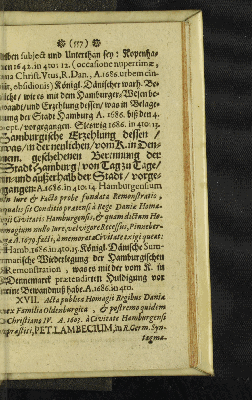 (557)
selben subject und Unterthan sey: Kopenha-
gen 1642. in 4to: 12. (occasione nupertimæ,
Christ. Vtus, R. Dan., A. 1686. urbem cin-
obsidionis) Königl. Dänischer warh. Be-
richt / wie es mit dem Hamburger / Wesen be-
wandt / und Erzehlung dessen / was in Belage-
rung der Stadt Hamburg A. 1686. biß den 4.
Sept. / vorgegangen. Slesvvig 1686. in 4to: 13.
Hamburgische Erzehlung dessen /
was / in der neulichen / von K. in Den-
nem. geschehenen Berennung der
Stadt Hamburg / von Tag zu Tage /
in- und außerhalb der Stadt / vorge-
gangen: A. 1686. in 4to: 14. Hamburgensium
in Iure & Facto probe fundata Remonstratio,
qualis sit Conditio prætensæ à Rege Daniæ Homa-
gii Civitatis Hamburgensis, & quam dictam Ho-
magium nullo iure, vel vigore Recessus, Pinneber-
gæ A. 1679. facti, à memorata Civitate exigi queat:
Hamb. 1686. in 4to, 15. Königl. Dänische Sum-
marische Wiederlegung der Hamburgischen
Remonstration, was es mit der vom K. in
Dennemarck prætendirten Huldigung vor
eine Bewandnuß habe. A. 1686. in 4to.
XVII. Acta publica Homagii Regibus Daniæ
ex Familia Oldenburgica, & postremo quidem
Christiano IV. A. 1603. à Civitate Hamburgensi
præstiti, PET. LAMBECIUM, in R. Germ. Syn-
tagma.